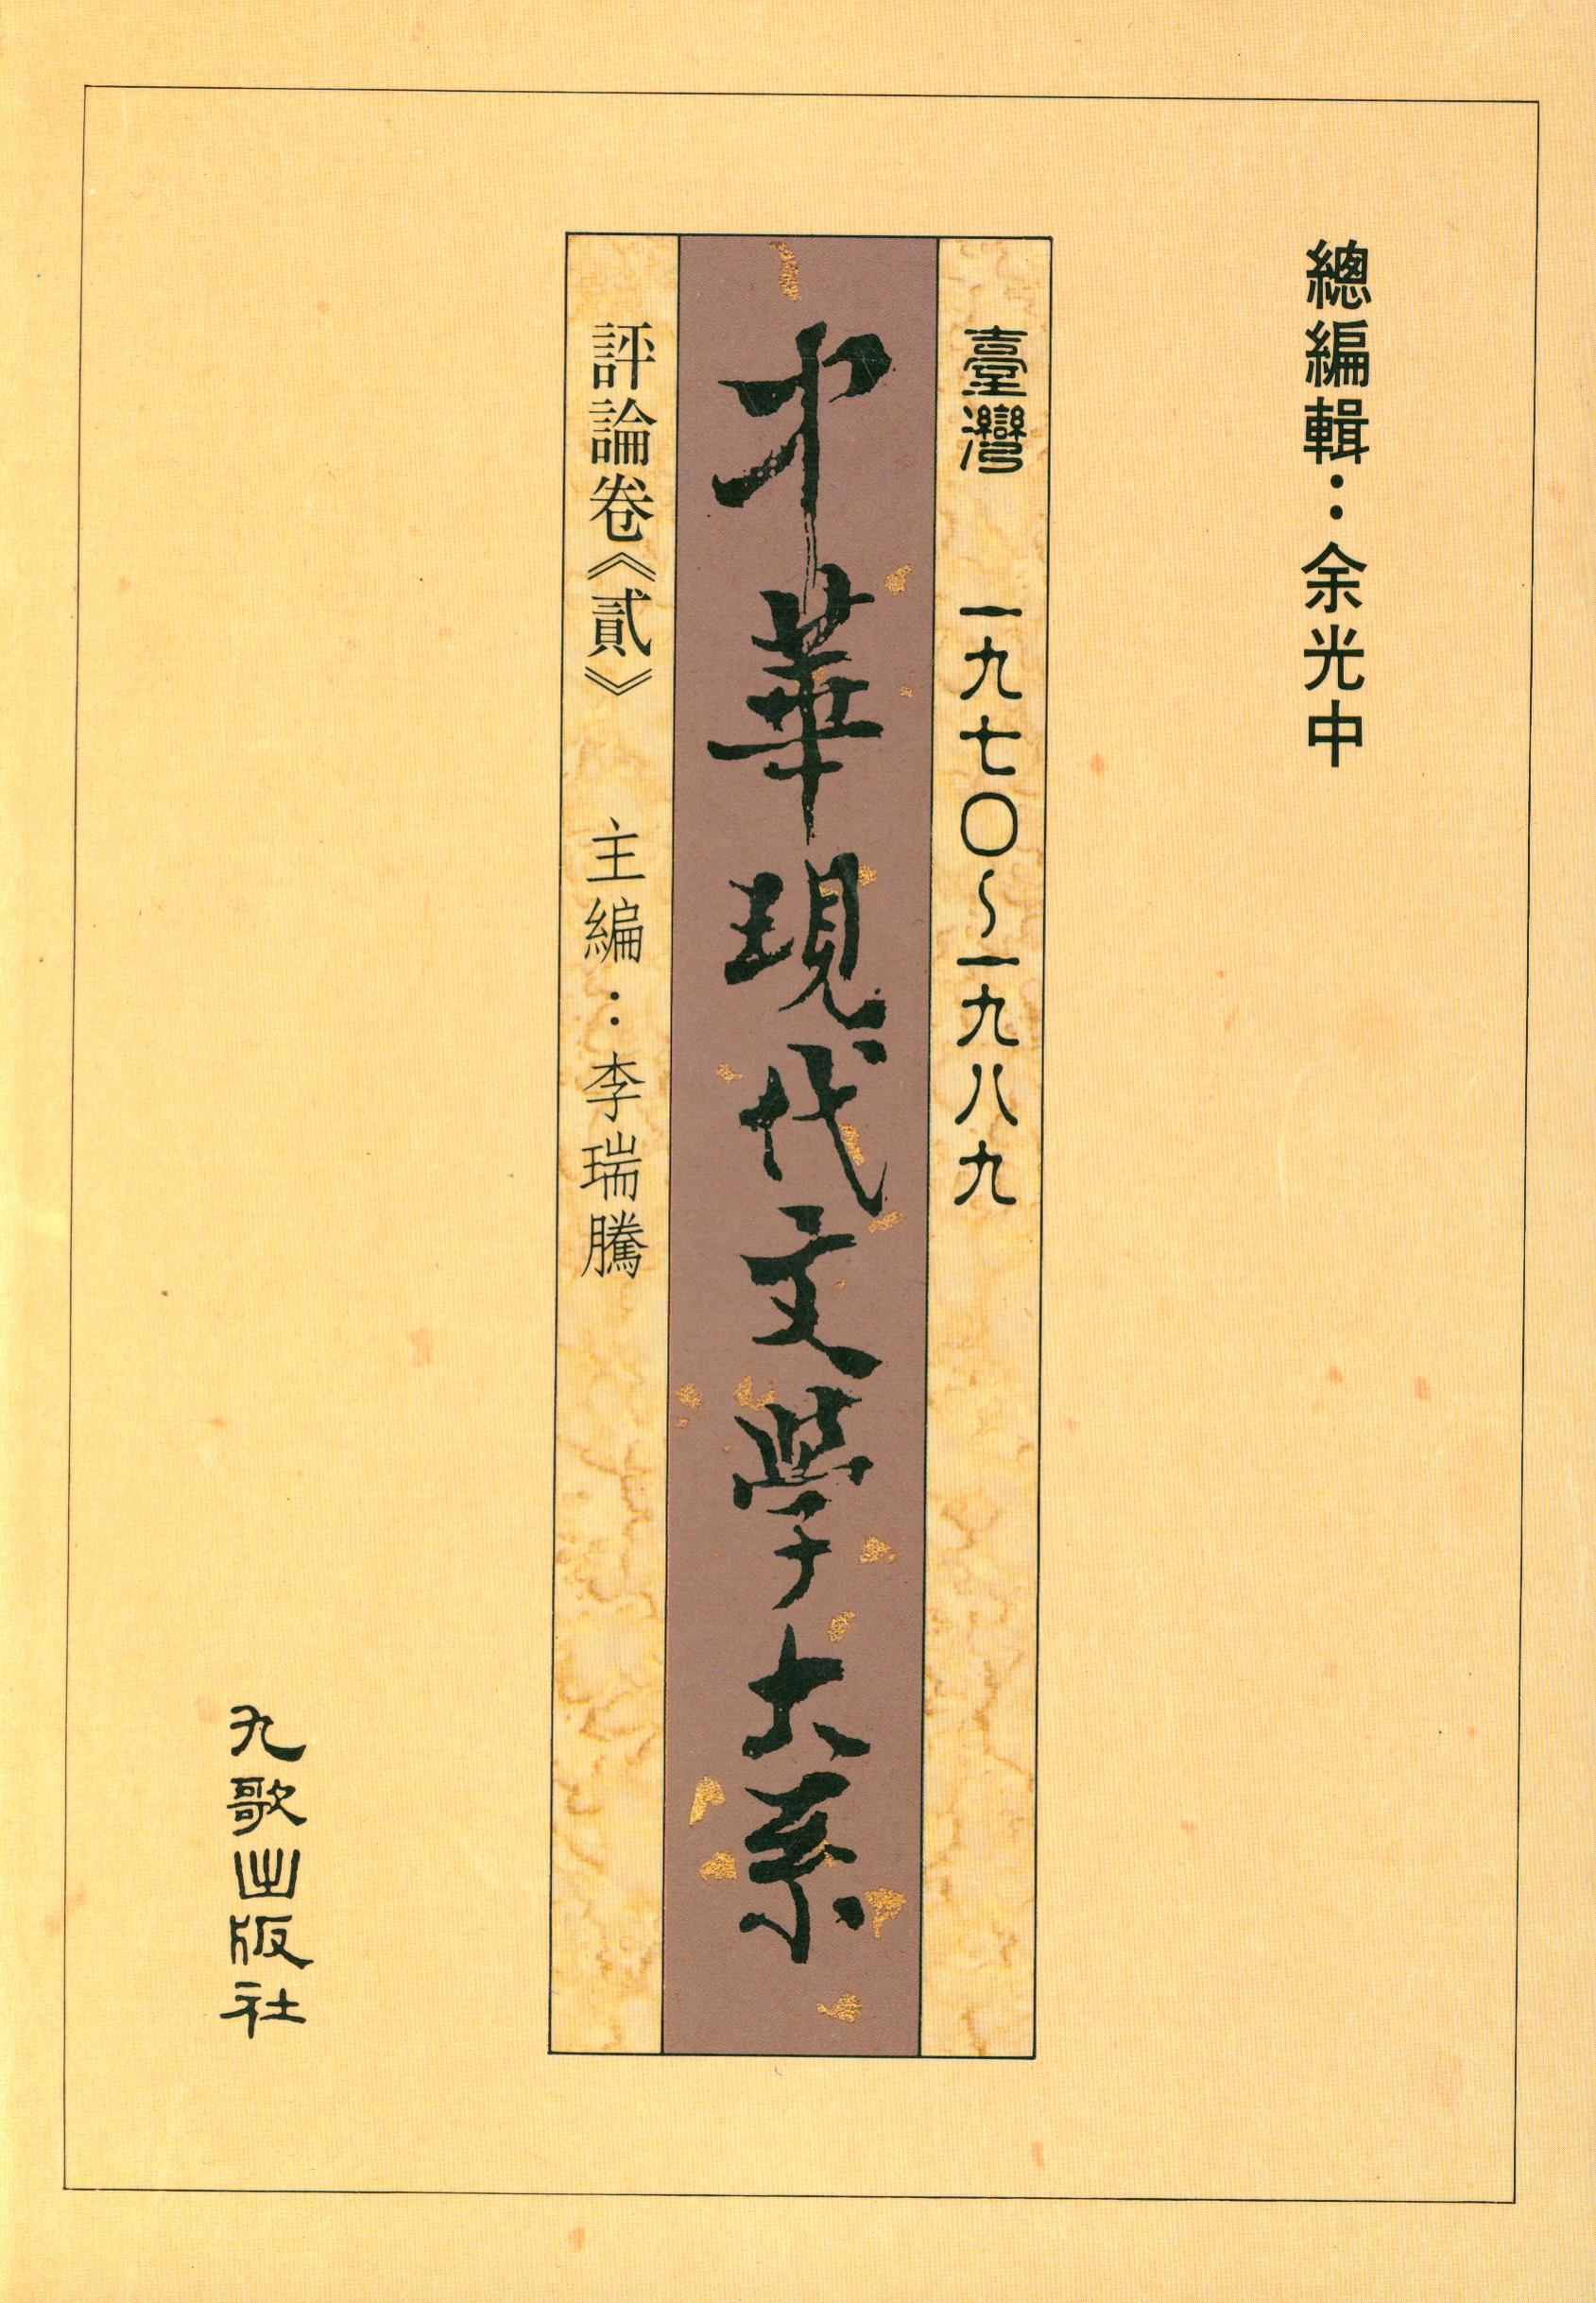 總編輯：余光中
臺灣 一九七〇～一九八九
中華現代文學大系
評論卷《貳》 主編：李瑞騰
九歌出版社